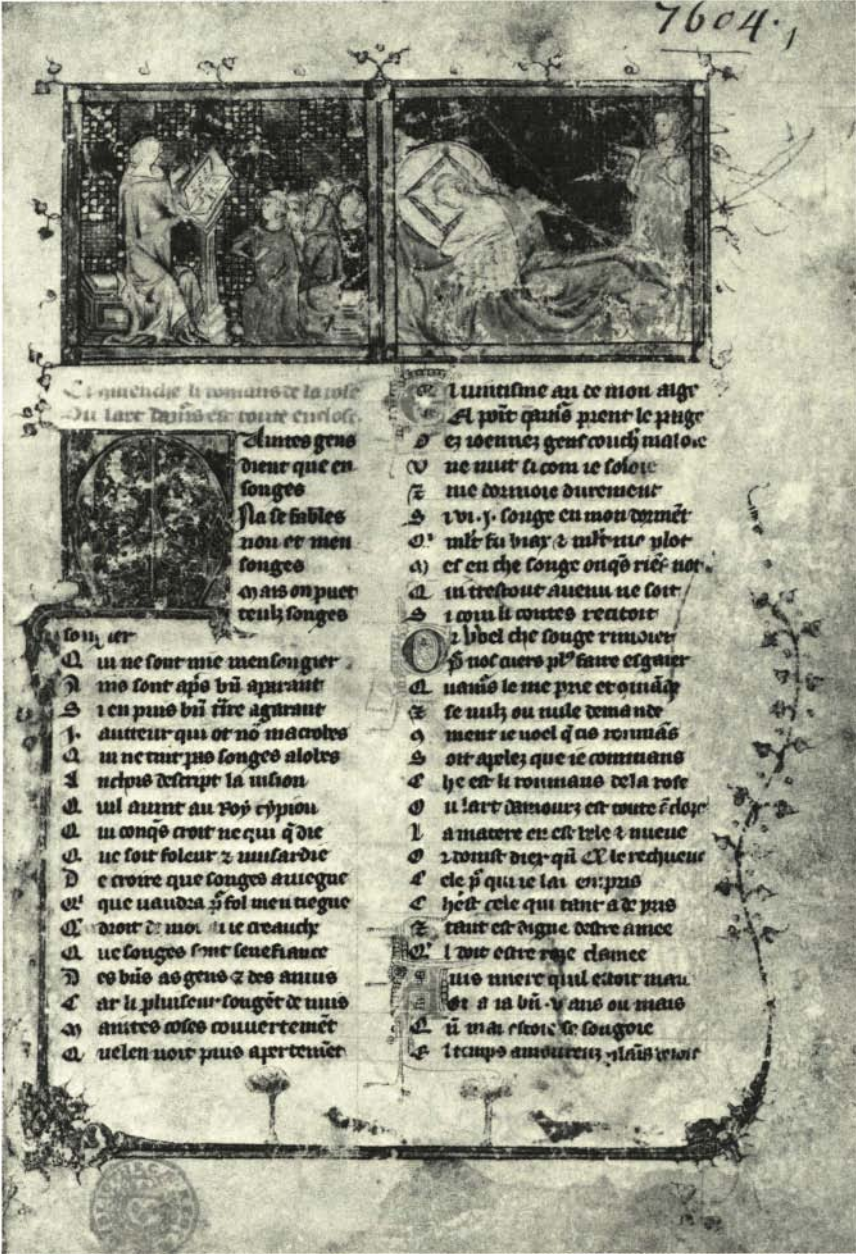 7604.
romans de la rose
lart est toute enclose
Maintes gens
dient que en
songes
Na se fables
non et men
songes
Mais on puet
teulz songes
songier
Q ui ne sont mie mensongier
A ins sont ap̄s bn̄ aparant
S i en puis bn̄ agarant
.J. aucteur qui ot nō macrobes
Q ui ne tint pas songes alobes
A nchois descript la uision
Q uil auint au Roy cypion
Q ui conq̄s croit ne qui q̄ die
Q ue soit foleur ⁊ musardie
D e croire que songes auiegne
que uaudra p̄ fol men tiegne
droit de moi ie creanche
Q ue songes sont senefiance
D es bn̄s as gens ⁊ des anuis
C ar li pluiseur songēt de nuis
M aintes coses couuertemēt
Q uelen uoit puis apertemēt
El uintisme an de mon aige
El point prent le
D ez iouenez gens couchiez maloie
U ne nuit si com ie soloie
⁊ me dormoie durement
S i ui .j. songe en mon dormēt
Q' mlt̄ fu biax ⁊ mlt̄ me plot
M es en che songe onq̄s riēs not
Q ui trestout auenu ne soit
S i com li contes recitoit
Or uoel che songe rimoier
P' uos cuers pl' faire esgaier
Q uamis le me prie et
⁊ se nulz ou nule demande
ment ie uoel romans
S oit apelez que ie commans
C he est li roumans dela rose
O u lart damours est toute ēclose
L a matere en est bele ⁊ nueue
O ⁊ doinst diex qn̄ le rechueue
C ele p̄ qui ie lai empris
C hest cele qui tant a de pris
⁊ tant est digne destre amee
Q l doit estre roze clamee
Auis mere quil estoit mais
a ia bn̄ .v. ans ou mais
Q n̄ mai estoie ce songoie
E l temps amoureux